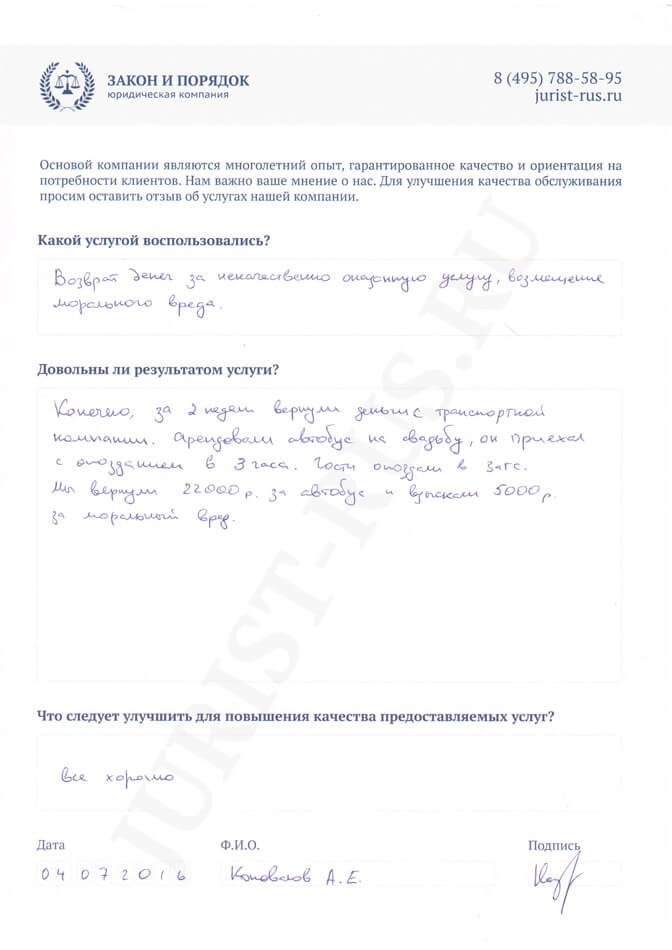 ЗАКОН И ПОРЯДОК
юридическая компания
8 (495) 788-58-95
jurist-rus.ru
Основой компании являются многолетний опыт, гарантированное качество и ориентация на
потребности клиентов. Нам важно ваше мнение о нас. Для улучшения качества обслуживания
просим оставить отзыв об услугах нашей компании.
Какой услугой воспользовались?
Возврат денег за некачественно оказанную услугу, возмещение
морального вреда.
Довольны ли результатом услуги?
Конечно, за 2 недели вернули деньги с транспортной
компании. Арендовали автобус на свадьбу, он приехал
с опозданием в 3 часа. Гости опоздали в загс.
Мы вернули 22000 р. за автобус и взыскали 5000 р.
за моральный вред.
Что следует улучшить для повышения качества предоставляемых услуг?
все хорошо
Дата
Ф.И.О.
Подпись
04 07 2016
Коновалов А.Е.
JURIST-RUS.RU